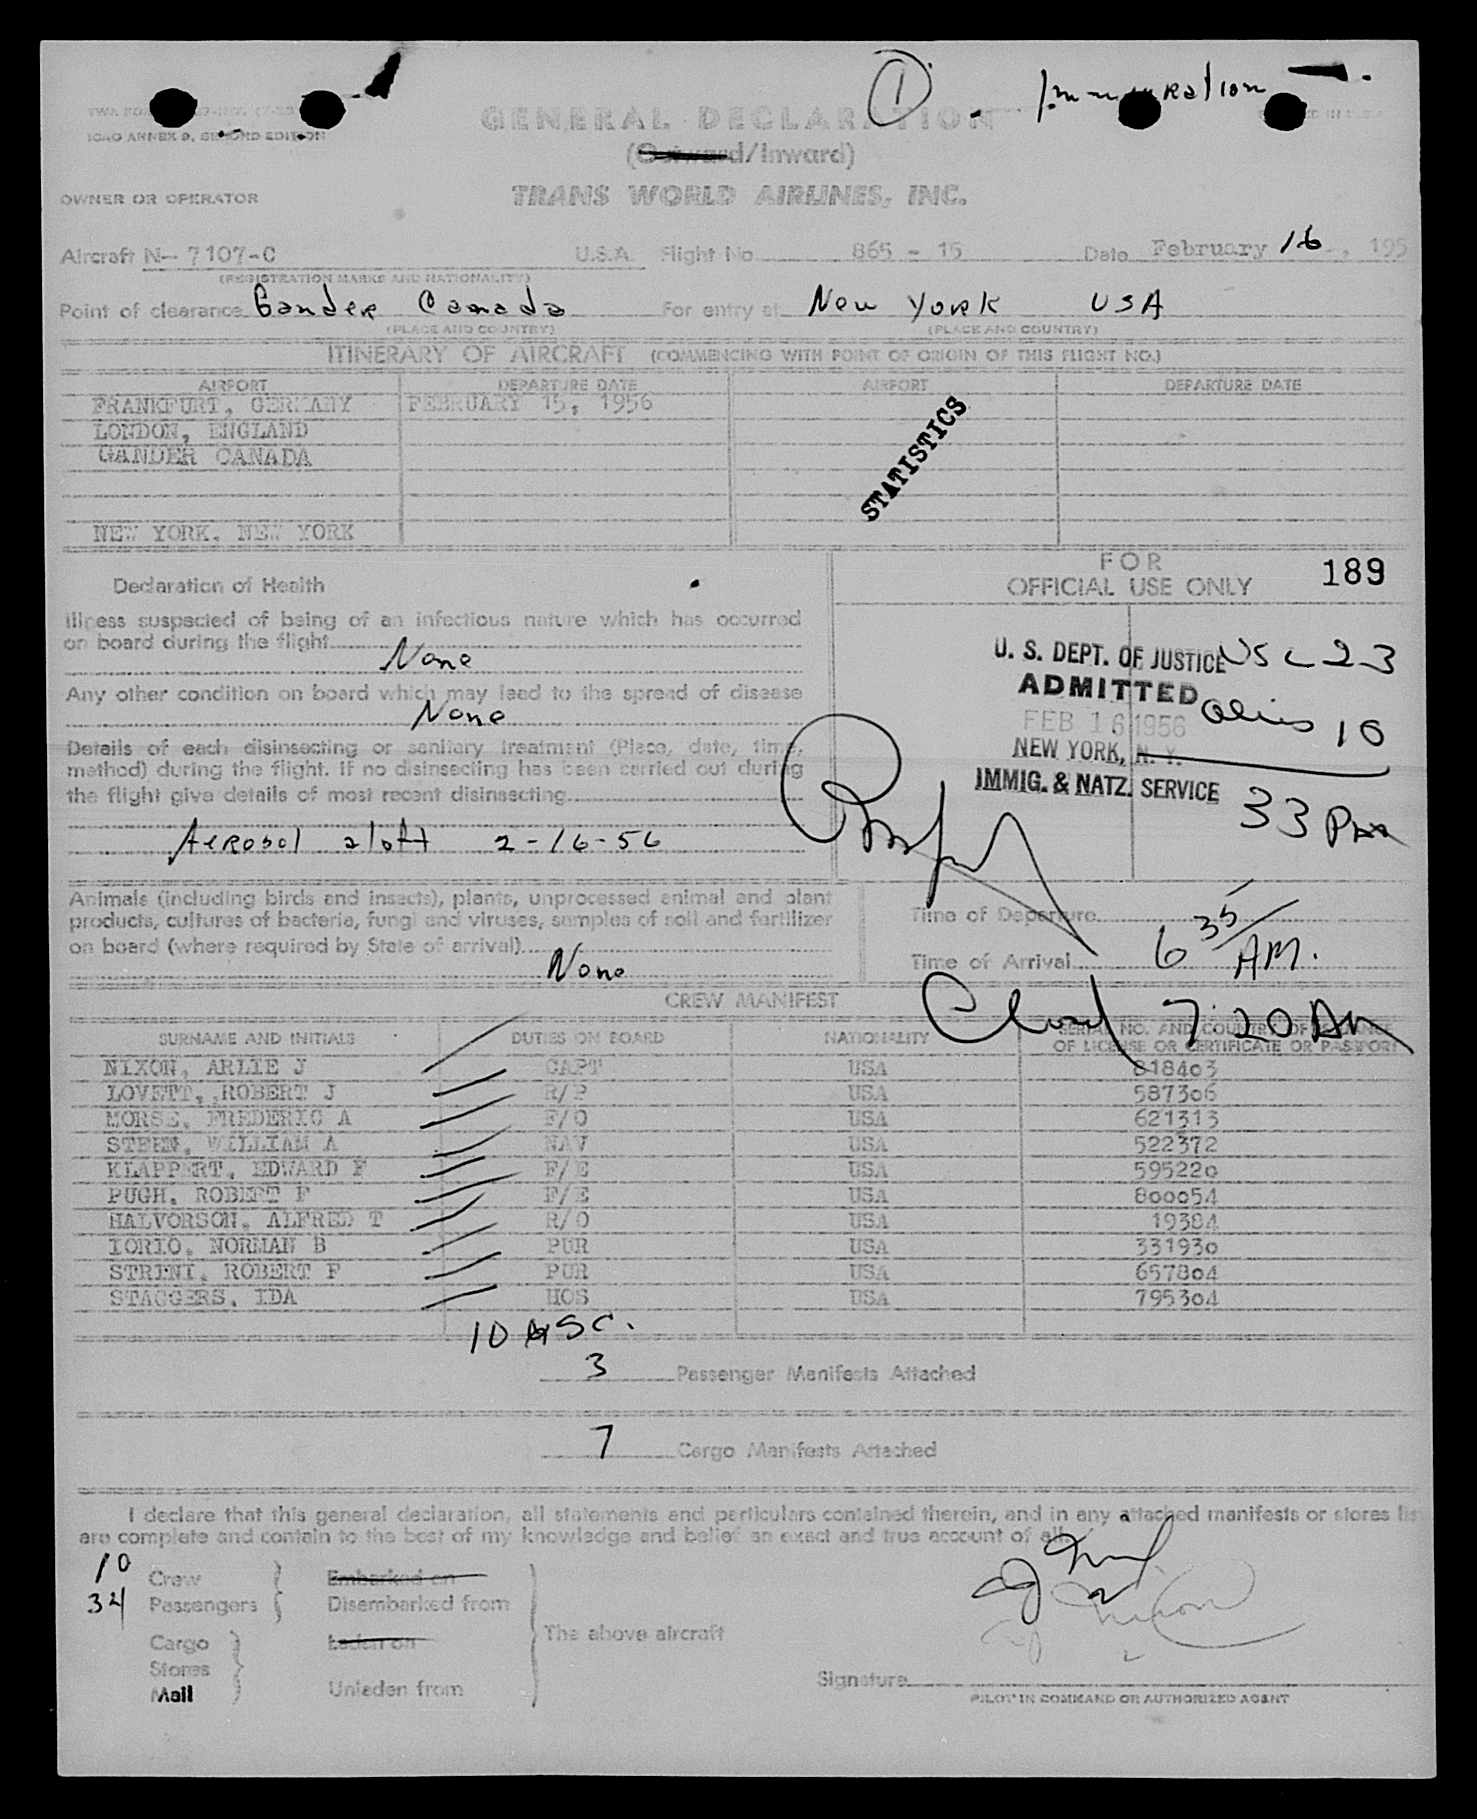 ① Immigration
GENERAL DECLARATION
ICAO ANNEX 9, SECOND EDITION
(Outward/Inward)
OWNER OR OPERATOR TRANS WORLD AIRLINES, INC.
Aircraft N- 7107-C U.S.A. Flight No 865 - 15 Date February 16, 195
(REGISTRATION MARKS AND NATIONALITY)
Point of clearance Gander Canada For entry at New York USA
(PLACE AND COUNTRY) (PLACE AND COUNTRY)
ITINERARY OF AIRCRAFT (COMMENCING WITH POINT OF ORIGIN OF THIS FLIGHT NO.)
AIRPORT DEPARTURE DATE AIRPORT DEPARTURE DATE
FRANKFURT, GERMANY FEBRUARY 15, 1956
LONDON, ENGLAND
GANDER CANADA
STATISTICS
NEW YORK, NEW YORK
FOR
OFFICIAL USE ONLY 189
Declaration of Health
Illness suspected of being of an infectious nature which has occurred
on board during the flight
None
Any other condition on board which may lead to the spread of disease
None
Details of each disinsecting or sanitary treatment (Place, date, time,
method) during the flight. If no disinsecting has been carried out during
the flight give details of most recent disinsecting
Aerosol aloft 2-16-56
U. S. DEPT. OF JUSTICE USC 23
ADMITTED
FEB 16 1956 Aliens 10
NEW YORK, N. Y.
IMMIG. & NATZ. SERVICE
33
Animals (including birds and insects), plants, unprocessed animal and plant
products, cultures of bacteria, fungi and viruses, samples of soil and fertilizer
on board (where required by State of arrival)
None
Time of Departure
Time of Arrival 6 35 AM.
7:20 AM
CREW MANIFEST
SURNAME AND INITIALS DUTIES ON BOARD NATIONALITY SERIAL NO. AND COUNTRY OF ISSUANCE
OF LICENSE OR CERTIFICATE OR PASSPORT
NIXON, ARLIE J CAPT USA 818403
LOVETT, ROBERT J R/P USA 587306
MORSE, FREDERIC A F/O USA 621313
STEEN, WILLIAM A NAV USA 522372
KLAPPERT, EDWARD F F/E USA 595220
PUGH, ROBERT F F/E USA 800054
HALVORSON, ALFRED T R/O USA 19384
IORIO, NORMAN B PUR USA 331930
STRINI, ROBERT F PUR USA 657804
STAGGERS, IDA HOS USA 795304
10 USC.
3 Passenger Manifests Attached
7 Cargo Manifests Attached
I declare that this general declaration, all statements and particulars contained therein, and in any attached manifests or stores lis
are complete and contain to the best of my knowledge and belief an exact and true account of all
10 Crew Embarked on
34 Passengers Disembarked from
The above aircraft
Cargo Laden on
Stores
Mail Unladen from
Signature
PILOT IN COMMAND OR AUTHORIZED AGENT